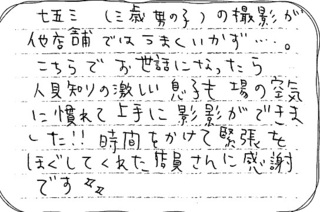 七五三 (三歳男の子)の撮影が
他店舗ではうまくいかず…。
こちらでお世話になったら
人見知りの激しい息子も場の空気
に慣れて上手に影影ができま
した!! 時間をかけて緊張を
ほぐしてくれた店員さんに感謝
です〃